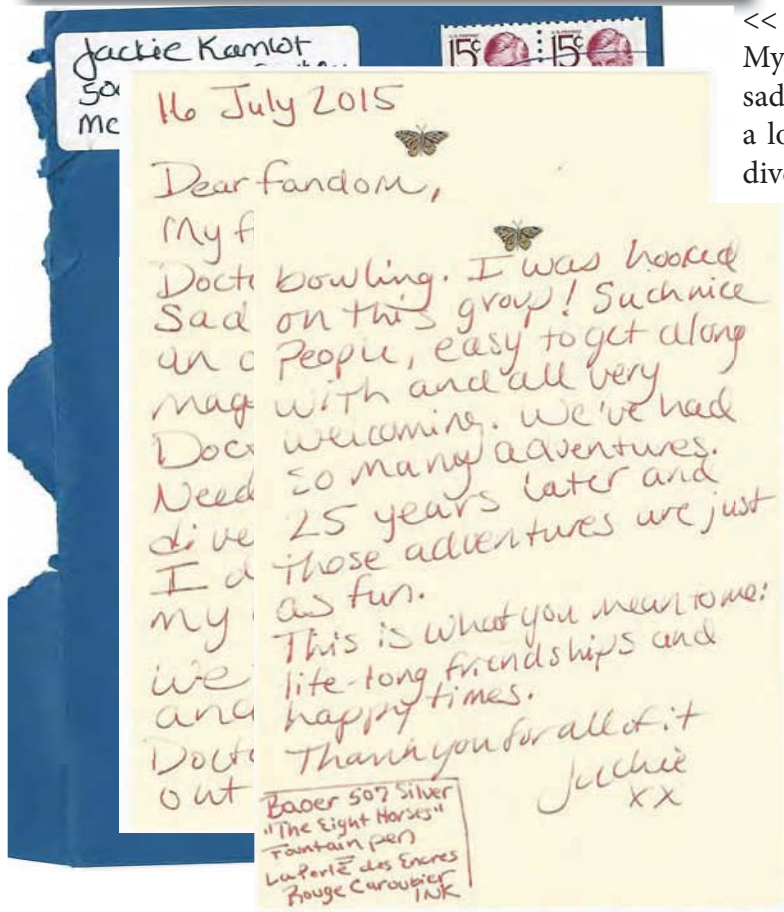 Jackie Kamlot
50
MC
15¢ 15¢
<<
My
sad
a lo
dive
16 July 2015
Dear fandom,
My f
Docto
Sad
an o
mag
Doct
Need
dive
I d
my
we
and
Docto
out
bowling. I was hooked
on this group! Such nice
People, easy to get along
with and all very
welcoming. We've had
so many adventures.
25 years later and
those adventures are just
as fun.
This is what you mean to me:
life-long friendships and
happy times.
Thank you for all of it
Jackie
xx
Baoer 507 Silver
"The Eight Horses"
Fountain pen
La Perle des Encres
Rouge Caroubier
INK